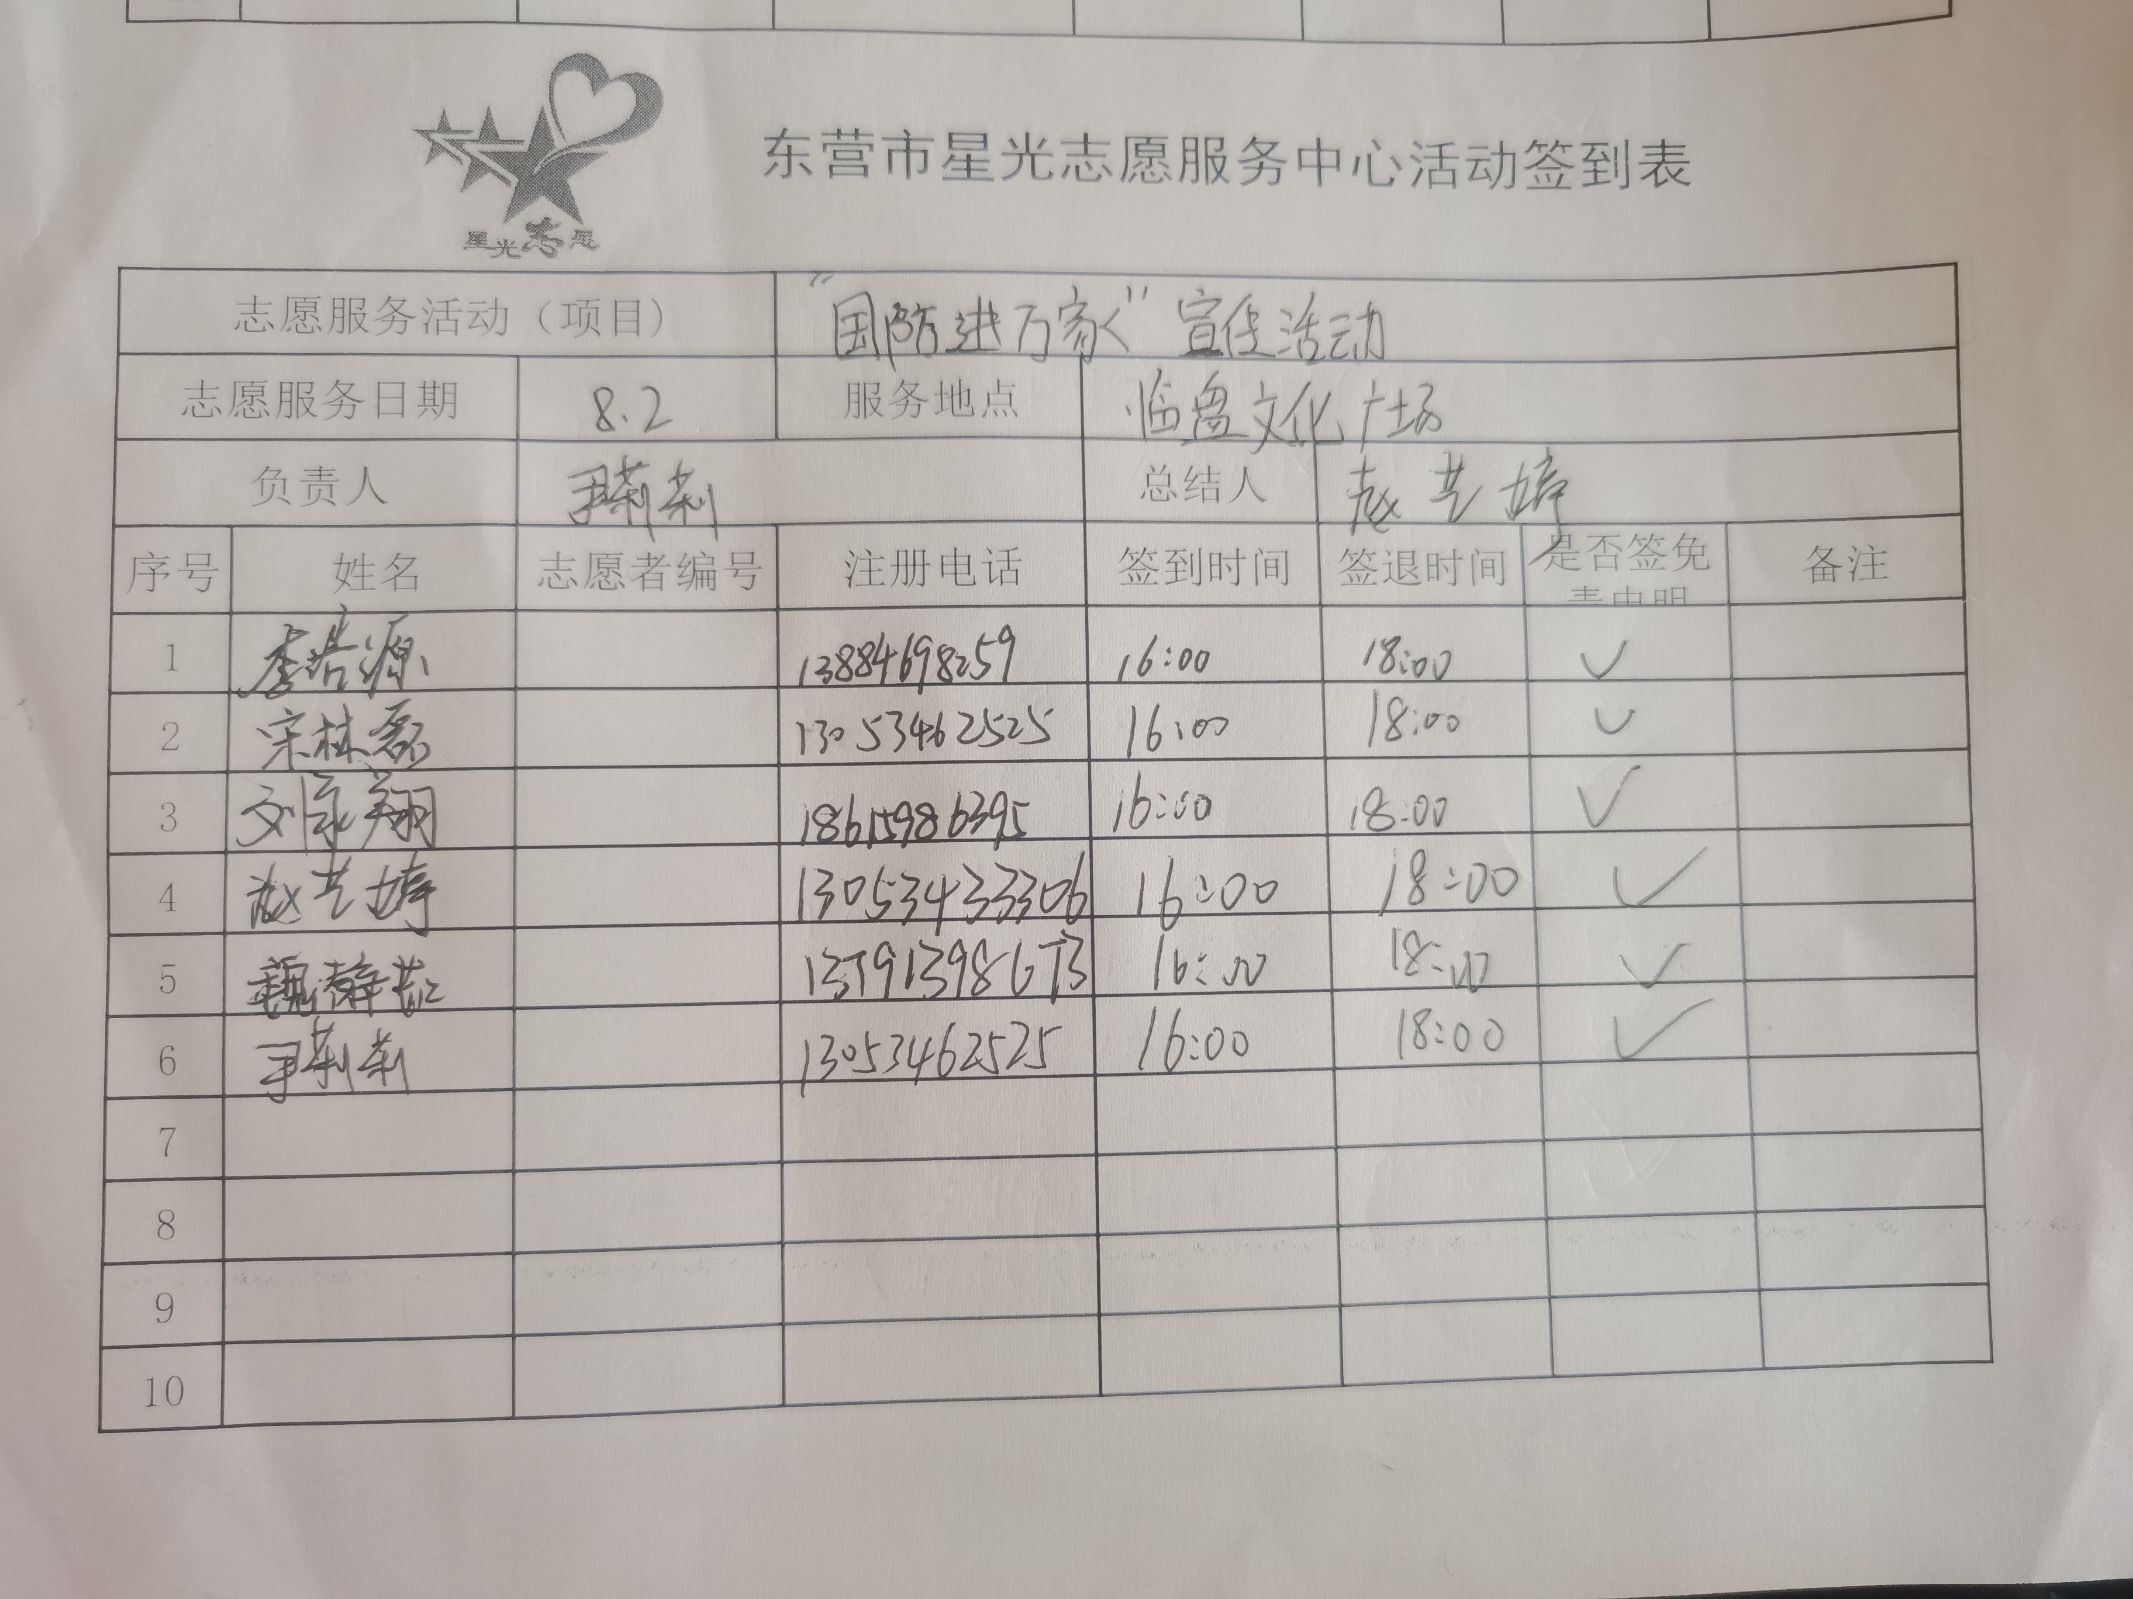 星光志愿
东营市星光志愿服务中心活动签到表
志愿服务活动（项目） “国防进万家”宣传活动
志愿服务日期 8.2 服务地点 临盘文化广场
负责人 尹莉莉 总结人 赵艺婷
序号 姓名 志愿者编号 注册电话 签到时间 签退时间 是否签免责申明 备注
1 李浩源 13884698259 16:00 18:00 ✓
2 宋林磊 13053462525 16:00 18:00 ✓
3 刘永翔 18615986395 16:00 18:00 ✓
4 赵艺婷 13053433306 16:00 18:00 ✓
5 魏静茹 16:00 18:00 ✓
6 尹莉莉 13053462525 16:00 18:00 ✓
7
8
9
10